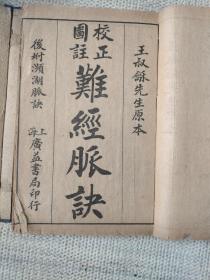 王叔龢先生原本
校正
圖註
難經脈訣
後附瀕湖脈訣
上海廣益書局印行